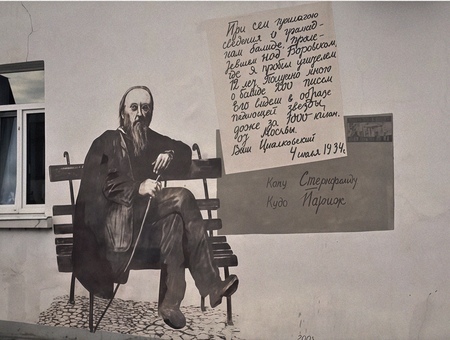 При сем прилагаю
сведения о громад-
ном болиде, проле-
тевшем над Боровском,
где я пробыл учителем
12 лет. Получено мною
о болиде 200 писем
Его видели в образе
падающей звезды,
даже за 1000 килом.
от Москвы.
Ваш Циолковский
4 июля 1934г.
Кому Стернфельду
Куда Париж